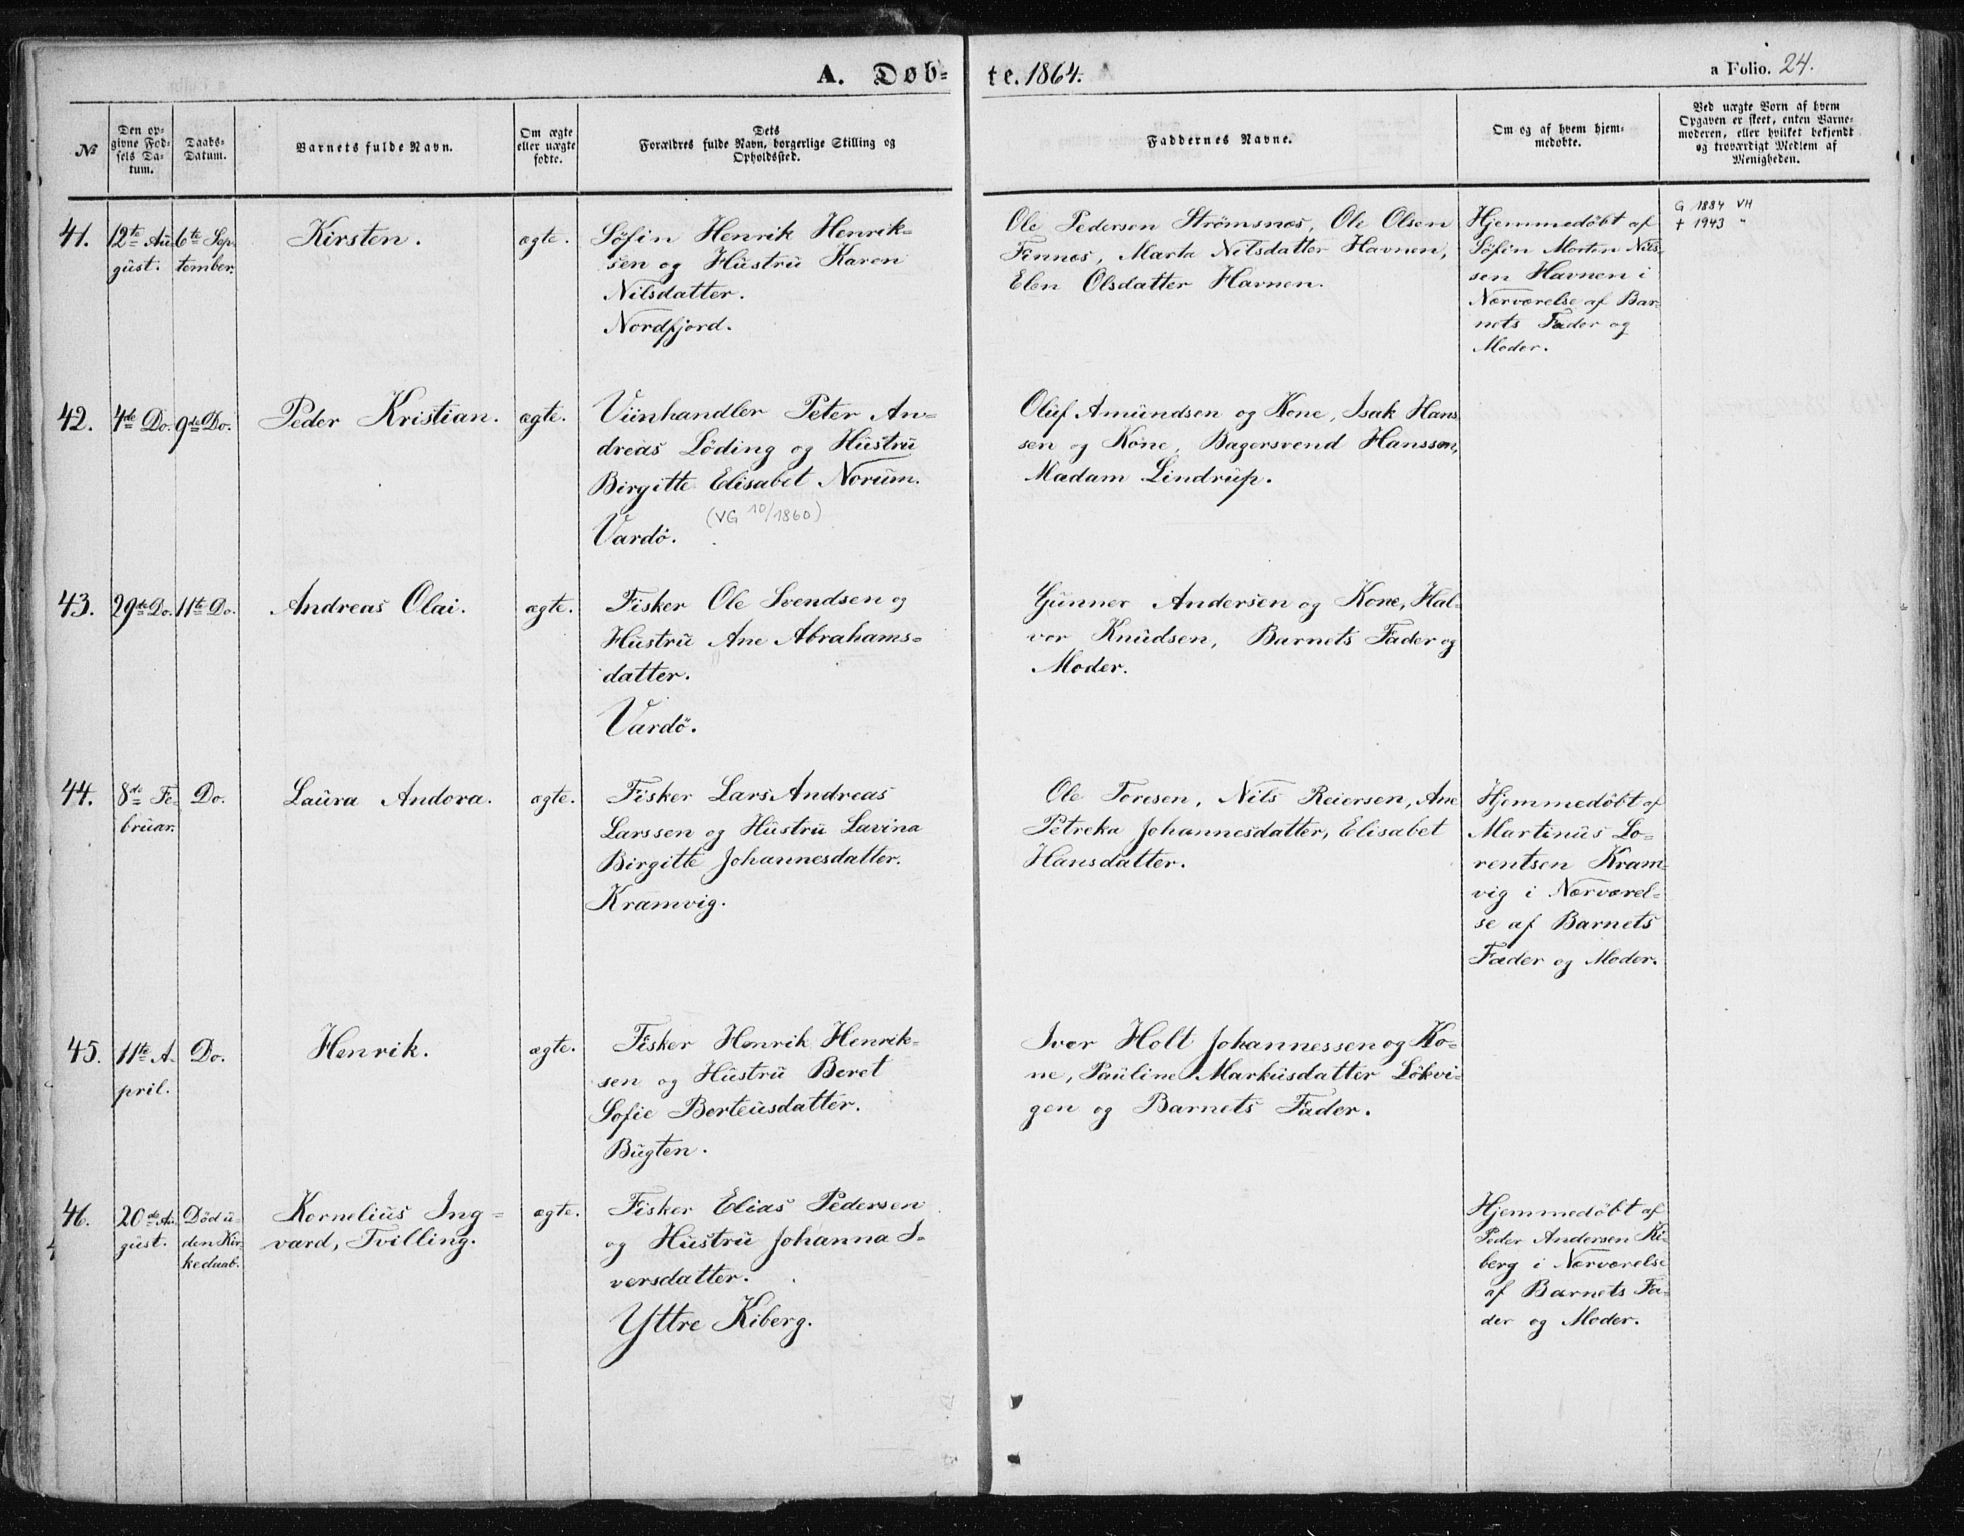 A. Døb-
te. 1864.
a Folio. 24.
№
Den op-
givne Fød-
sels Da-
tum.
Daabs-
Datum.
Barnets fulde Navn.
Om ægte
eller uægte
fødte.
Dets
Forældres fulde Navn, borgerlige Stilling og
Opholdssted.
Faddernes Navne.
Om og af hvem hjem-
medøbte.
Ved uægte Born af hvem
Opgaven er skeet, enten Barne-
moderen, eller hvilket bekjendt
og troværdigt Medlem af
Menigheden.
41.
12te Au-
gust.
6te Sep-
tember.
Kirsten.
ægte.
Søfin Henrik Henrik-
sen og Hustru Karen
Nilsdatter.
Nordfjord.
Ole Pedersen Strömsnæs, Ole Olsen
Finnæs, Marta Nilsdatter Havnen,
Elen Olsdatter Havnen.
Hjemmedöbt af
Söfin Morten Nils-
sen Havnen i
Nærværelse af Bar-
nets Fader og
Moder.
G 1884 VH
† 1943 "
42.
4de Do.
9de Do.
Peder Kristian.
ægte.
Viinhandler Peter An-
dreas Löding og Hustru
Birgitte Elisabet Norum.
(VG 10/1860)
Vardö.
Oluf Amundsen og Kone, Isak Hans-
sen og Kone, Bagersvend Hanssen,
Madam Lindrup.
43.
29de Do.
11te Do.
Andreas Olai.
ægte.
Fisker Ole Svendsen og
Hustru Ane Abrahams-
datter.
Vardö.
Gunner Andersen og Kone, Hal-
vor Knudsen, Barnets Fader og
Moder.
44.
8de Fe-
bruar.
Do.
Laura Andora.
ægte.
Fisker Lars Andreas
Larssen og Hustru Lavina
Birgitte Johannesdatter.
Kramvig.
Ole Toresen, Nils Reiersen, Ane
Petreka Johannesdatter, Elisabet
Hansdatter.
Hjemmedöbt af
Martinus Lo-
rentsen Kram-
vig i Nærværel-
se af Barnets
Fader og Moder.
45.
11te A-
pril.
Do.
Henrik.
ægte.
Fisker Henrik Henrik-
sen og Hustru Beret
Sofie Berteusdatter.
Bugten.
Iver Holt Johannessen og Ko-
ne, Pauline Markusdatter Lökvi-
gen og Barnets Fader.
46.
20de Au-
gust.
Död u-
den Kir-
kedaab.
Kornelius Ing-
vard, Tvilling.
ægte.
Fisker Elias Pedersen
og Hustru Johanna I-
versdatter.
Yttre Kiberg.
Hjemmedöbt af
Peder Andersen Ki-
berg i Nærværelse
af Barnets Fa-
der og Moder.